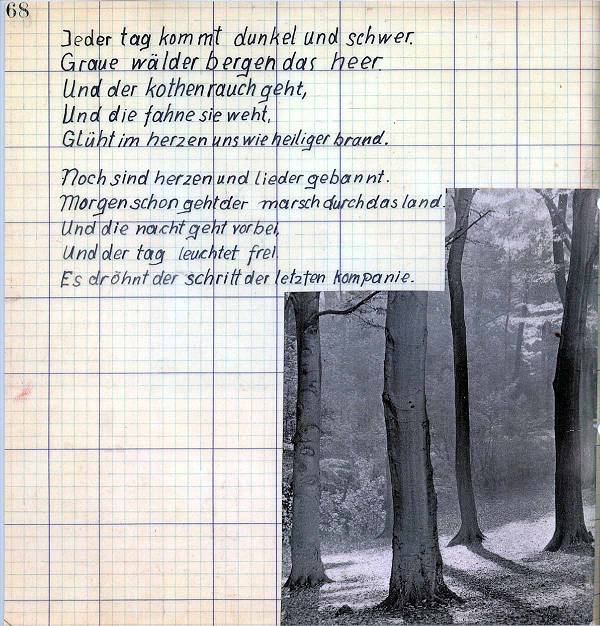 68
Jeder tag kommt dunkel und schwer.
Graue wälder bergen das heer.
Und der kothenrauch geht,
Und die fahne sie weht,
Glüht im herzen uns wie heiliger brand.
Noch sind herzen und lieder gebannt.
Morgen schon geht der marsch durch das land.
Und die nacht geht vorbei,
Und der tag leuchtet frei.
Es dröhnt der schritt der letzten kompanie.